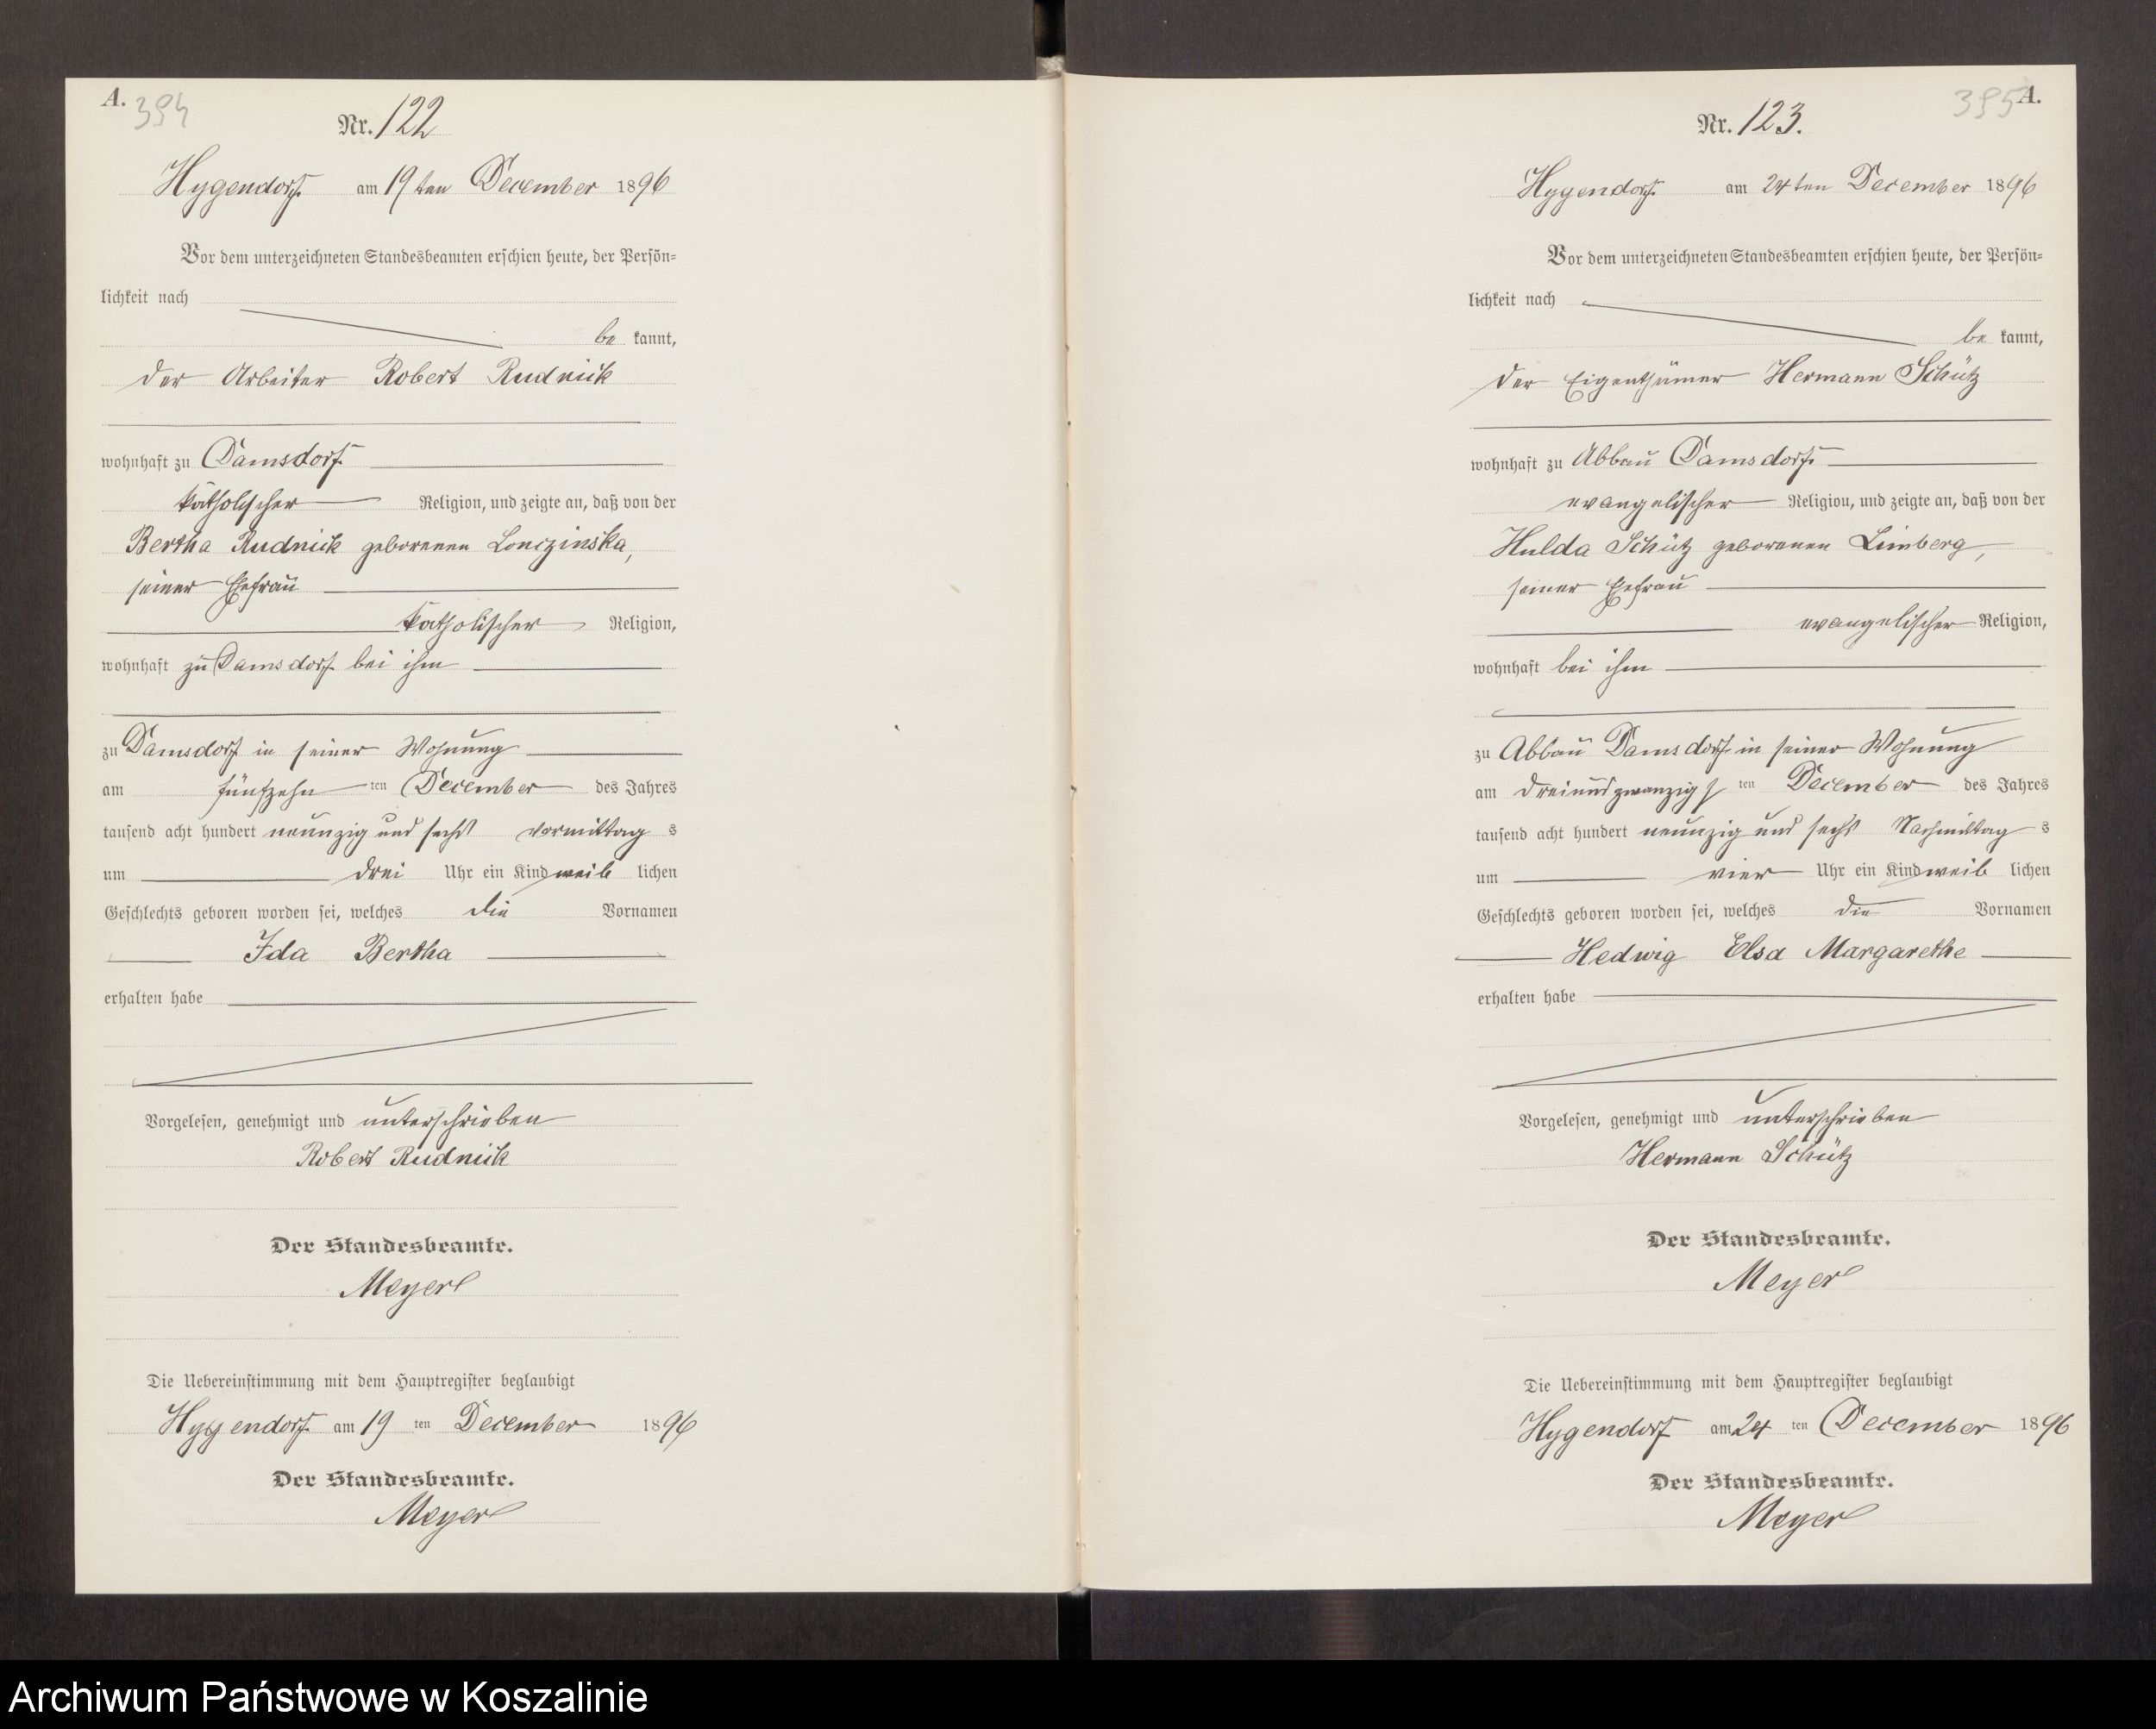 A.
394
Nr. 122
Hygendorf am 19ten December 1896
Vor dem unterzeichneten Standesbeamten erschien heute, der Persön-
lichkeit nach
be kannt,
der Arbeiter Robert Rudnick
wohnhaft zu Damsdorf
katholischer Religion, und zeigte an, daß von der
Bertha Rudnick geborenen Lonczinska,
seiner Ehefrau
katholischer Religion,
wohnhaft zu Damsdorf bei ihm
zu Damsdorf in seiner Wohnung
am fünfzehn ten December des Jahres
tausend acht hundert neunzig und sechs vormittag s
um drei Uhr ein Kind weib lichen
Geschlechts geboren worden sei, welches die Vornamen
Ida Bertha
erhalten habe
Vorgelesen, genehmigt und unterschrieben
Robert Rudnick
Der Standesbeamte.
Meyer
Die Uebereinstimmung mit dem Hauptregister beglaubigt
Hygendorf am 19 ten December 1896
Der Standesbeamte.
Meyer
395
A.
Nr. 123.
Hygendorf am 24ten December 1896
Vor dem unterzeichneten Standesbeamten erschien heute, der Persön-
lichkeit nach
be kannt,
der Eigenthümer Hermann Schütz
wohnhaft zu Abbau Damsdorf
evangelischer Religion, und zeigte an, daß von der
Hulda Schütz geborenen Limberg,
seiner Ehefrau
evangelischer Religion,
wohnhaft bei ihm
zu Abbau Damsdorf in seiner Wohnung
am dreiundzwanzigs ten December des Jahres
tausend acht hundert neunzig und sechs Nachmittag s
um vier Uhr ein Kind weib lichen
Geschlechts geboren worden sei, welches die Vornamen
Hedwig Elsa Margarethe
erhalten habe
Vorgelesen, genehmigt und unterschrieben
Hermann Schütz
Der Standesbeamte.
Meyer
Die Uebereinstimmung mit dem Hauptregister beglaubigt
Hygendorf am 24 ten December 1896
Der Standesbeamte.
Meyer
Archiwum Państwowe w Koszalinie